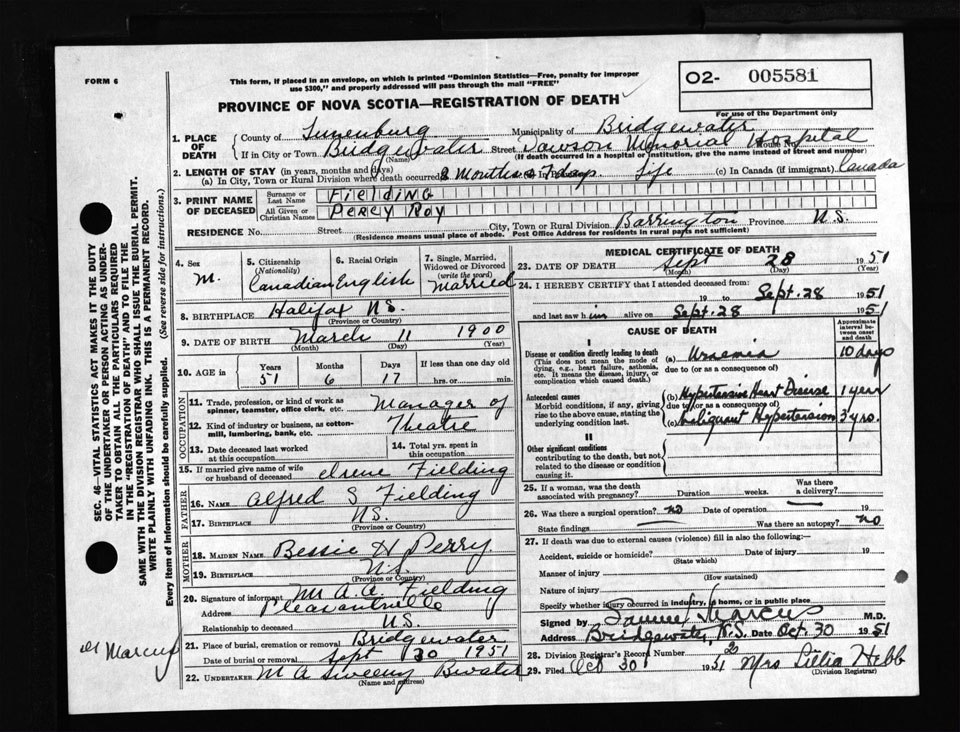 FORM 6
This form, if placed in an envelope, on which is printed "Dominion Statistics—Free, penalty for improper
use $300," and properly addressed will pass through the mail "FREE"
O2- 005581
For use of the Department only
PROVINCE OF NOVA SCOTIA—REGISTRATION OF DEATH
1. PLACE OF DEATH
County of Lunenburg Municipality of Bridgewater
If in City or Town Bridgewater Street Dawson Memorial Hospital House No.
(Name) (If death occurred in a hospital or institution, give the name instead of street and number)
2. LENGTH OF STAY (in years, months and days)
(a) In City, Town or Rural Division where death occurred 2 Months 4 days (b) In Province Life (c) In Canada (if immigrant) Canada
3. PRINT NAME OF DECEASED
Surname or Last Name FIELDING
All Given or Christian Names PERCY ROY
RESIDENCE No. Street City, Town or Rural Division Barrington Province N.S.
(Residence means usual place of abode. Post Office Address for residents in rural parts not sufficient)
4. Sex M.
5. Citizenship (Nationality) Canadian
6. Racial Origin English
7. Single, Married, Widowed or Divorced (write the word) Married
8. BIRTHPLACE Halifax N.S.
(Province or Country)
9. DATE OF BIRTH March 11 1900
(Month) (Day) (Year)
10. AGE IN Years 51 Months 6 Days 17 If less than one day old hrs. or min.
OCCUPATION
11. Trade, profession, or kind of work as spinner, teamster, office clerk, etc. Manager of
12. Kind of industry or business, as cotton-mill, lumbering, bank, etc. Theatre
13. Date deceased last worked at this occupation
14. Total yrs. spent in this occupation
15. If married give name of wife or husband of deceased Irene Fielding
FATHER
16. NAME Alfred S Fielding
17. BIRTHPLACE N.S.
(Province or Country)
MOTHER
18. MAIDEN NAME Bessie H Perry
19. BIRTHPLACE N.S.
(Province or Country)
20. Signature of informant M A. A Fielding
Address Pleasantville
Relationship to deceased N.S.
21. Place of burial, cremation or removal Bridgewater
Date of burial or removal Sept 30 1951
22. UNDERTAKER M A Sweeny Bwater
(Name and address)
MEDICAL CERTIFICATE OF DEATH
23. DATE OF DEATH Sept 28 1951
(Month) (Day) (Year)
24. I HEREBY CERTIFY that I attended deceased from:
19 to Sept. 28 1951
and last saw him alive on Sept. 28 1951
CAUSE OF DEATH
Approximate interval between onset and death
I
Disease or condition directly leading to death
(This does not mean the mode of dying, e.g., heart failure, asthenia, etc. It means the disease, injury, or complication which caused death.)
(a) Uraemia 10 days
due to (or as a consequence of)
Antecedent causes
Morbid conditions, if any, giving rise to the above cause, stating the underlying condition last.
(b) Hypertensive Heart Disease 1 year
due to (or as a consequence of)
(c) Malignant Hypertension 3 yrs.
II
Other significant conditions
contributing to the death, but not related to the disease or condition causing it.
25. If a woman, was the death associated with pregnancy? Duration weeks. Was there a delivery?
26. Was there a surgical operation? no Date of operation 19
State findings Was there an autopsy? no
27. If death was due to external causes (violence) fill in also the following:—
Accident, suicide or homicide? Date of injury 19
(State which)
Manner of injury
(How sustained)
Nature of injury
Specify whether injury occurred in industry, in home, or in public place
Signed by Samuel Marcus M.D.
Address Bridgewater, N.S. Date Oct. 30 1951
28. Division Registrar's Record Number 20
29. Filed Oct 30 1951 Mrs Lillia Hebb
(Division Registrar)
SEC. 46—VITAL STATISTICS ACT MAKES IT THE DUTY
OF THE UNDERTAKER OR PERSON ACTING AS UNDER-
TAKER TO OBTAIN ALL THE PARTICULARS REQUIRED
IN THE "REGISTRATION OF DEATH" AND TO FILE THE
SAME WITH THE DIVISION REGISTRAR WHO SHALL ISSUE THE BURIAL PERMIT.
WRITE PLAINLY WITH UNFADING INK. THIS IS A PERMANENT RECORD.
Every item of Information should be carefully supplied. (See reverse side for instructions.)
Marcus